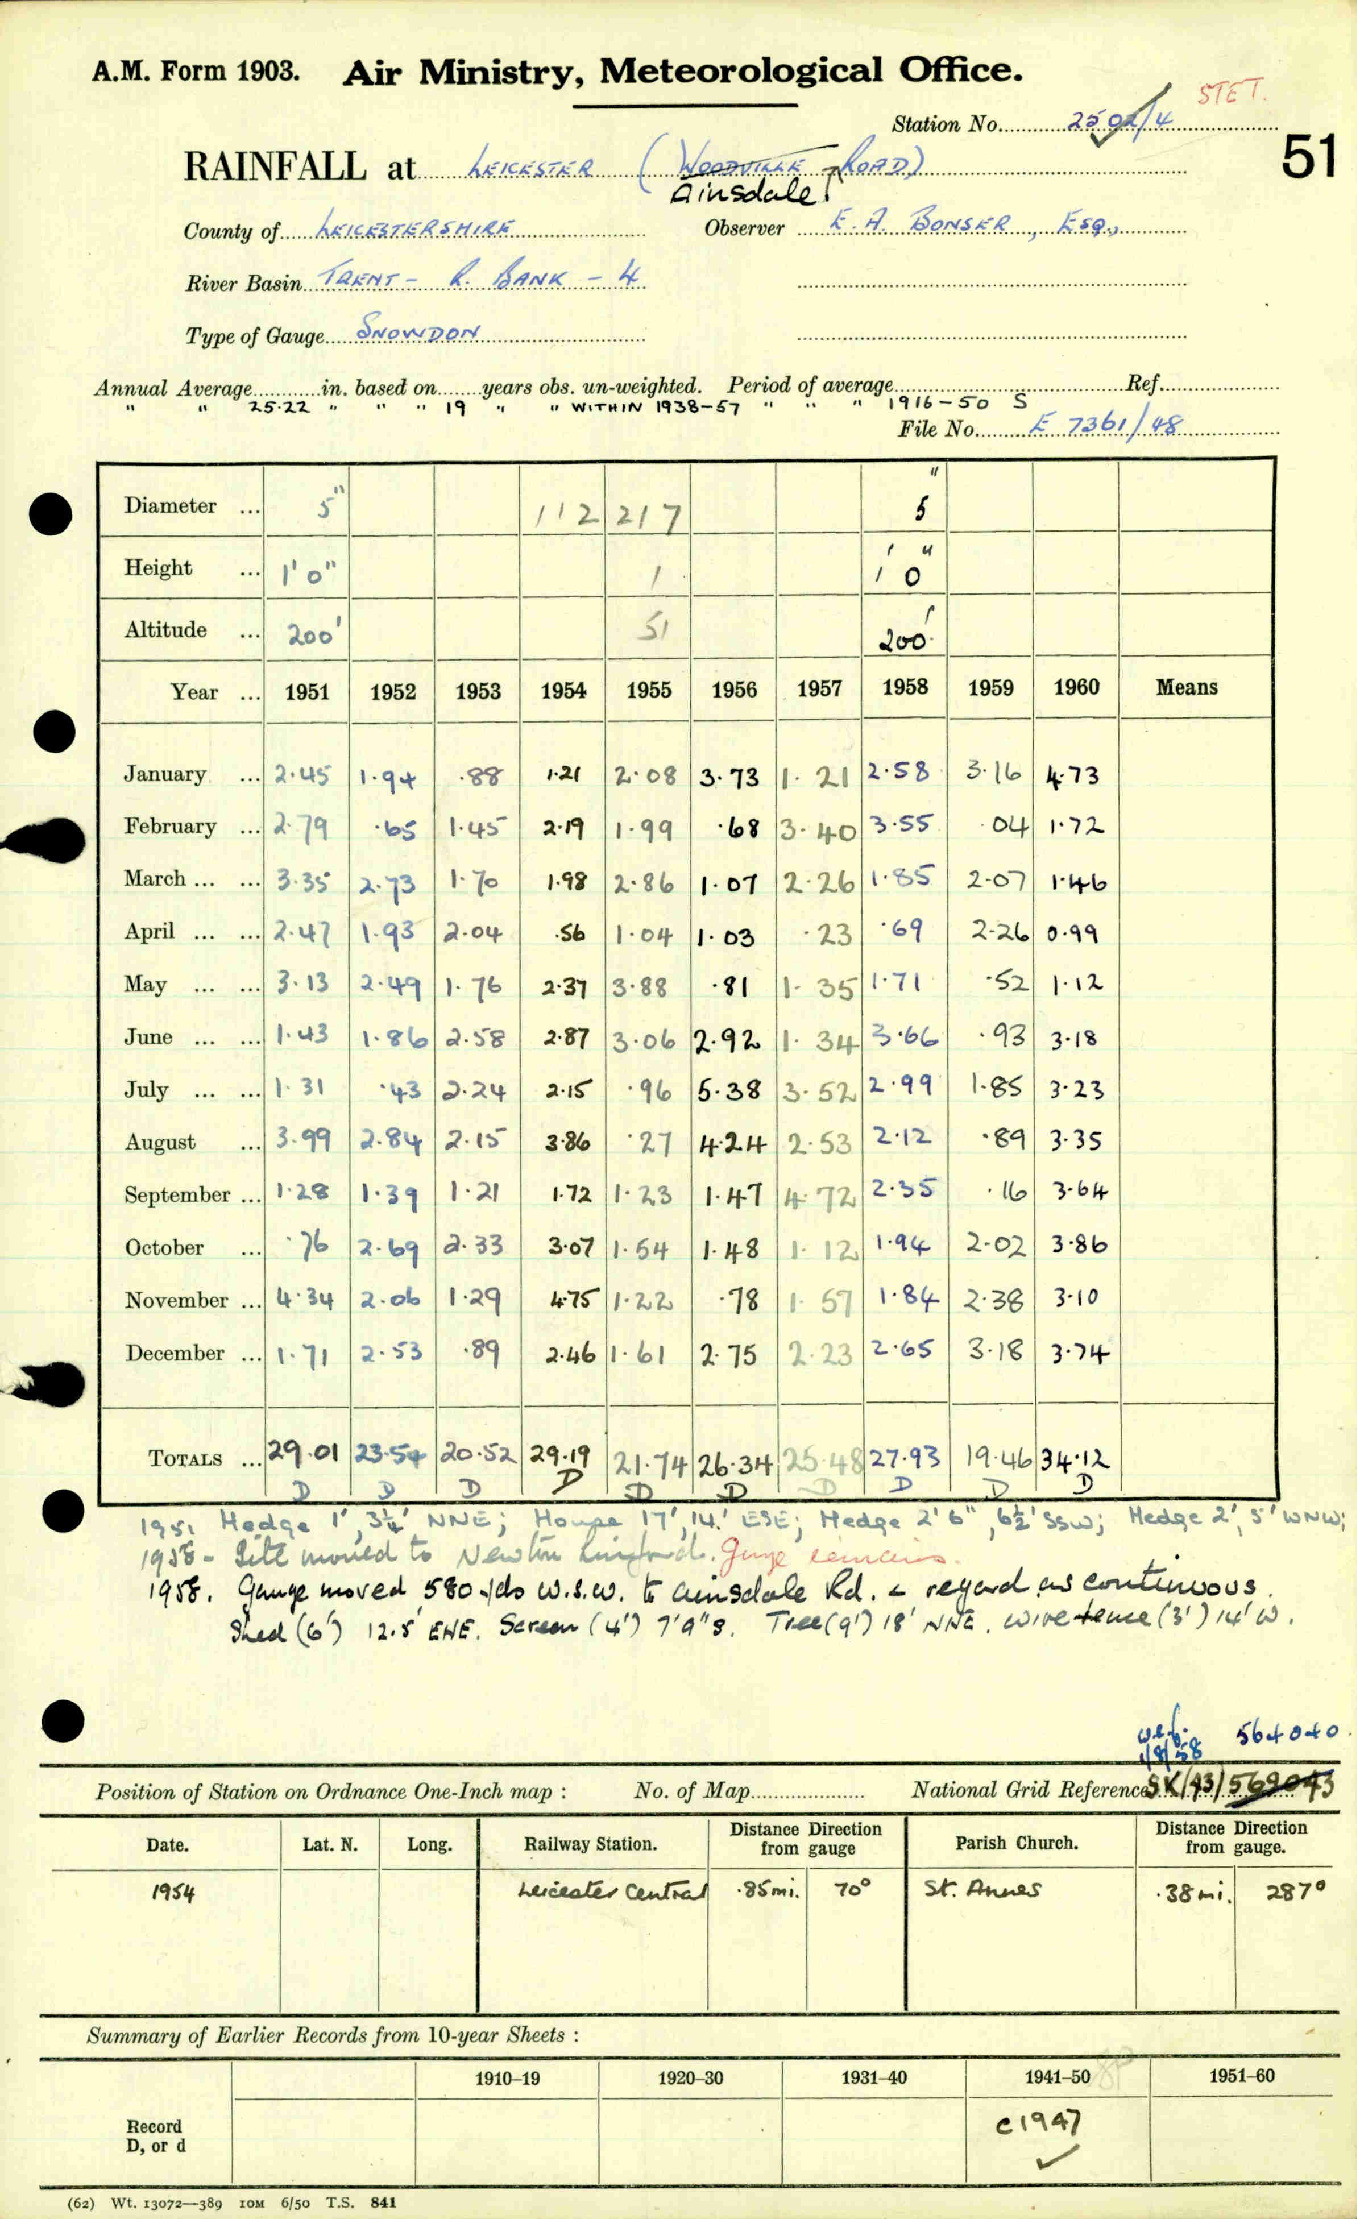 A.M. Form 1903. Air Ministry, Meteorological Office.
STET.
Station No. 2502/4
51
RAINFALL at LEICESTER (WOODVILLE ROAD)
Ainsdale
County of LEICESTERSHIRE Observer E. A. BONSER, Esq.,
River Basin TRENT - R. BANK - 4
Type of Gauge SNOWDON
Annual Average in. based on years obs. un-weighted. Period of average Ref.
" " 25.22 " " " 19 " " WITHIN 1938-57 " " " 1916-50 S
File No. E 7361/48
Diameter ... 5" 112 217 5"
Height ... 1' 0" 1 1' 0"
Altitude ... 200' 51 200'
Year ... 1951 1952 1953 1954 1955 1956 1957 1958 1959 1960 Means
January ... 2.45 1.94 .88 1.21 2.08 3.73 1.21 2.58 3.16 4.73
February ... 2.79 .65 1.45 2.19 1.99 .68 3.40 3.55 .04 1.72
March ... ... 3.35 2.73 1.70 1.98 2.86 1.07 2.26 1.85 2.07 1.46
April ... ... 2.47 1.93 2.04 .56 1.04 1.03 .23 .69 2.26 0.99
May ... ... 3.13 2.49 1.76 2.37 3.88 .81 1.35 1.71 .52 1.12
June ... ... 1.43 1.86 2.58 2.87 3.06 2.92 1.34 3.66 .93 3.18
July ... ... 1.31 .43 2.24 2.15 .96 5.38 3.52 2.99 1.85 3.23
August ... 3.99 2.84 2.15 3.86 .27 4.24 2.53 2.12 .89 3.35
September ... 1.28 1.39 1.21 1.72 1.23 1.47 4.72 2.35 .16 3.64
October ... .76 2.69 2.33 3.07 1.54 1.48 1.12 1.94 2.02 3.86
November ... 4.34 2.06 1.29 4.75 1.22 .78 1.57 1.84 2.38 3.10
December ... 1.71 2.53 .89 2.46 1.61 2.75 2.23 2.65 3.18 3.74
TOTALS ... 29.01 23.54 20.52 29.19 21.74 26.34 25.48 27.93 19.46 34.12
D D D D D D D D D D
1951 Hedge 1', 3¼' NNE; House 17', 14' ESE; Hedge 2' 6", 6½' SSW; Hedge 2', 5' WNW;
1958 - Site moved to Newton Linford. Gauge remains.
1958. Gauge moved 580 yds W.S.W. to Ainsdale Rd. & regard as continuous.
Shed (6') 12.5' ENE. Screen (4') 7'9" S. Tree (9') 18' NNE. Wire fence (3') 14' W.
w.e.f. 1/8/58 564040
Position of Station on Ordnance One-Inch map : No. of Map National Grid Reference SK/43/569043
Date. Lat. N. Long. Railway Station. Distance Direction from gauge Parish Church. Distance Direction from gauge.
1954 Leicester Central .85mi. 70° St. Annes .38mi. 287°
Summary of Earlier Records from 10-year Sheets :
1910–19 1920–30 1931–40 1941–50 1951–60
Record D, or d c1947
(62) Wt. 13072—389 10M 6/50 T.S. 841